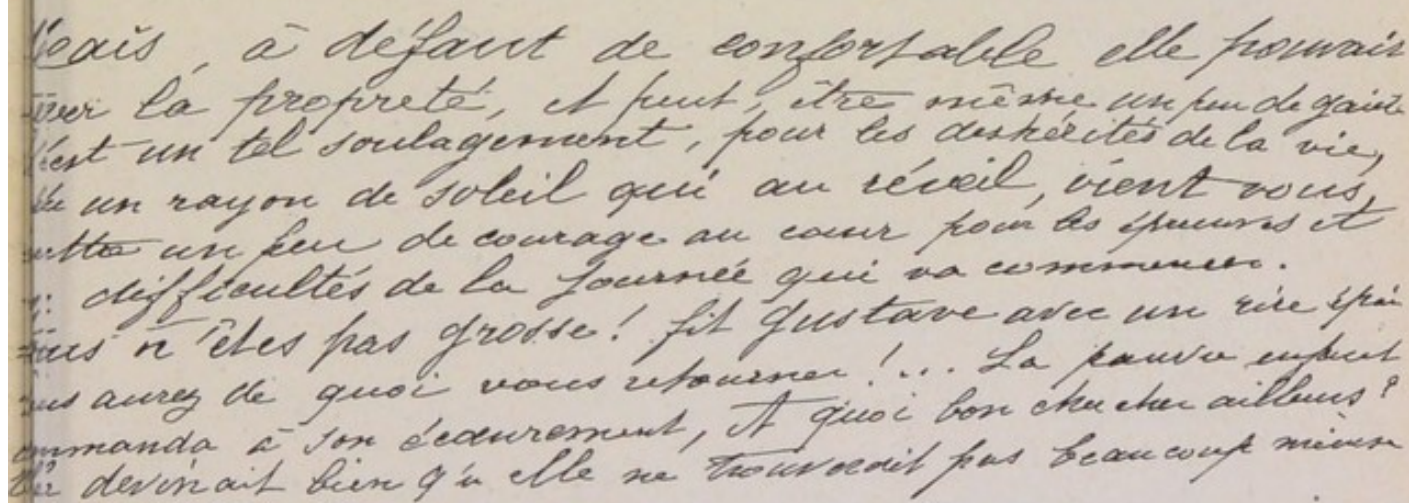 Mais, à défaut de confortable elle pouvait
la propreté, et peut, être même un peu de gaieté
C'est un tel soulagement, pour les deshérités de la vie,
un rayon de soleil qui au réveil, vient vous,
mettre un peu de courage au cœur pour les épreuves et
difficultés de la journée qui va commencer.
Vous n'êtes pas grosse! fit Gustave avec un rire épais
vous aurez de quoi vous retourner!... La pauvre enfant
commanda à son écœurement, A quoi bon chercher ailleurs?
devinait bien qu'elle ne trouverait pas beaucoup mieux